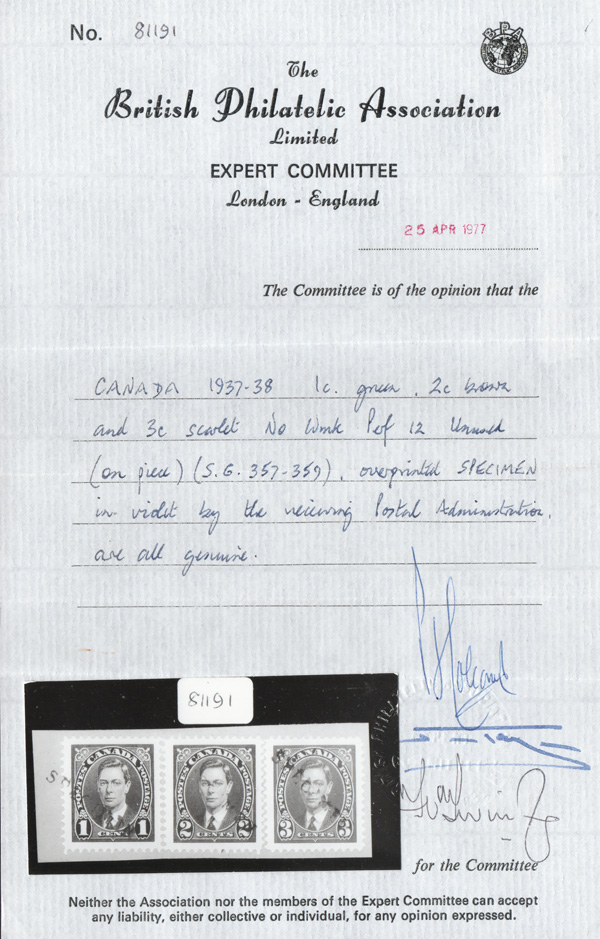 No. 81191
BPA
The
British Philatelic Association
Limited
EXPERT COMMITTEE
London - England
25 APR 1977
The Committee is of the opinion that the
CANADA 1937-38 1c. green, 2c brown
and 3c scarlet No Wmk Perf 12 Unused
(on piece) (S.G. 357-359), overprinted SPECIMEN
in violet by the receiving Postal Administration,
are all genuine.
81191
POSTES CANADA POSTAGE
1 CENT 1
POSTES CANADA POSTAGE
2 CENTS 2
POSTES CANADA POSTAGE
3 CENTS 3
for the Committee
Neither the Association nor the members of the Expert Committee can accept
any liability, either collective or individual, for any opinion expressed.